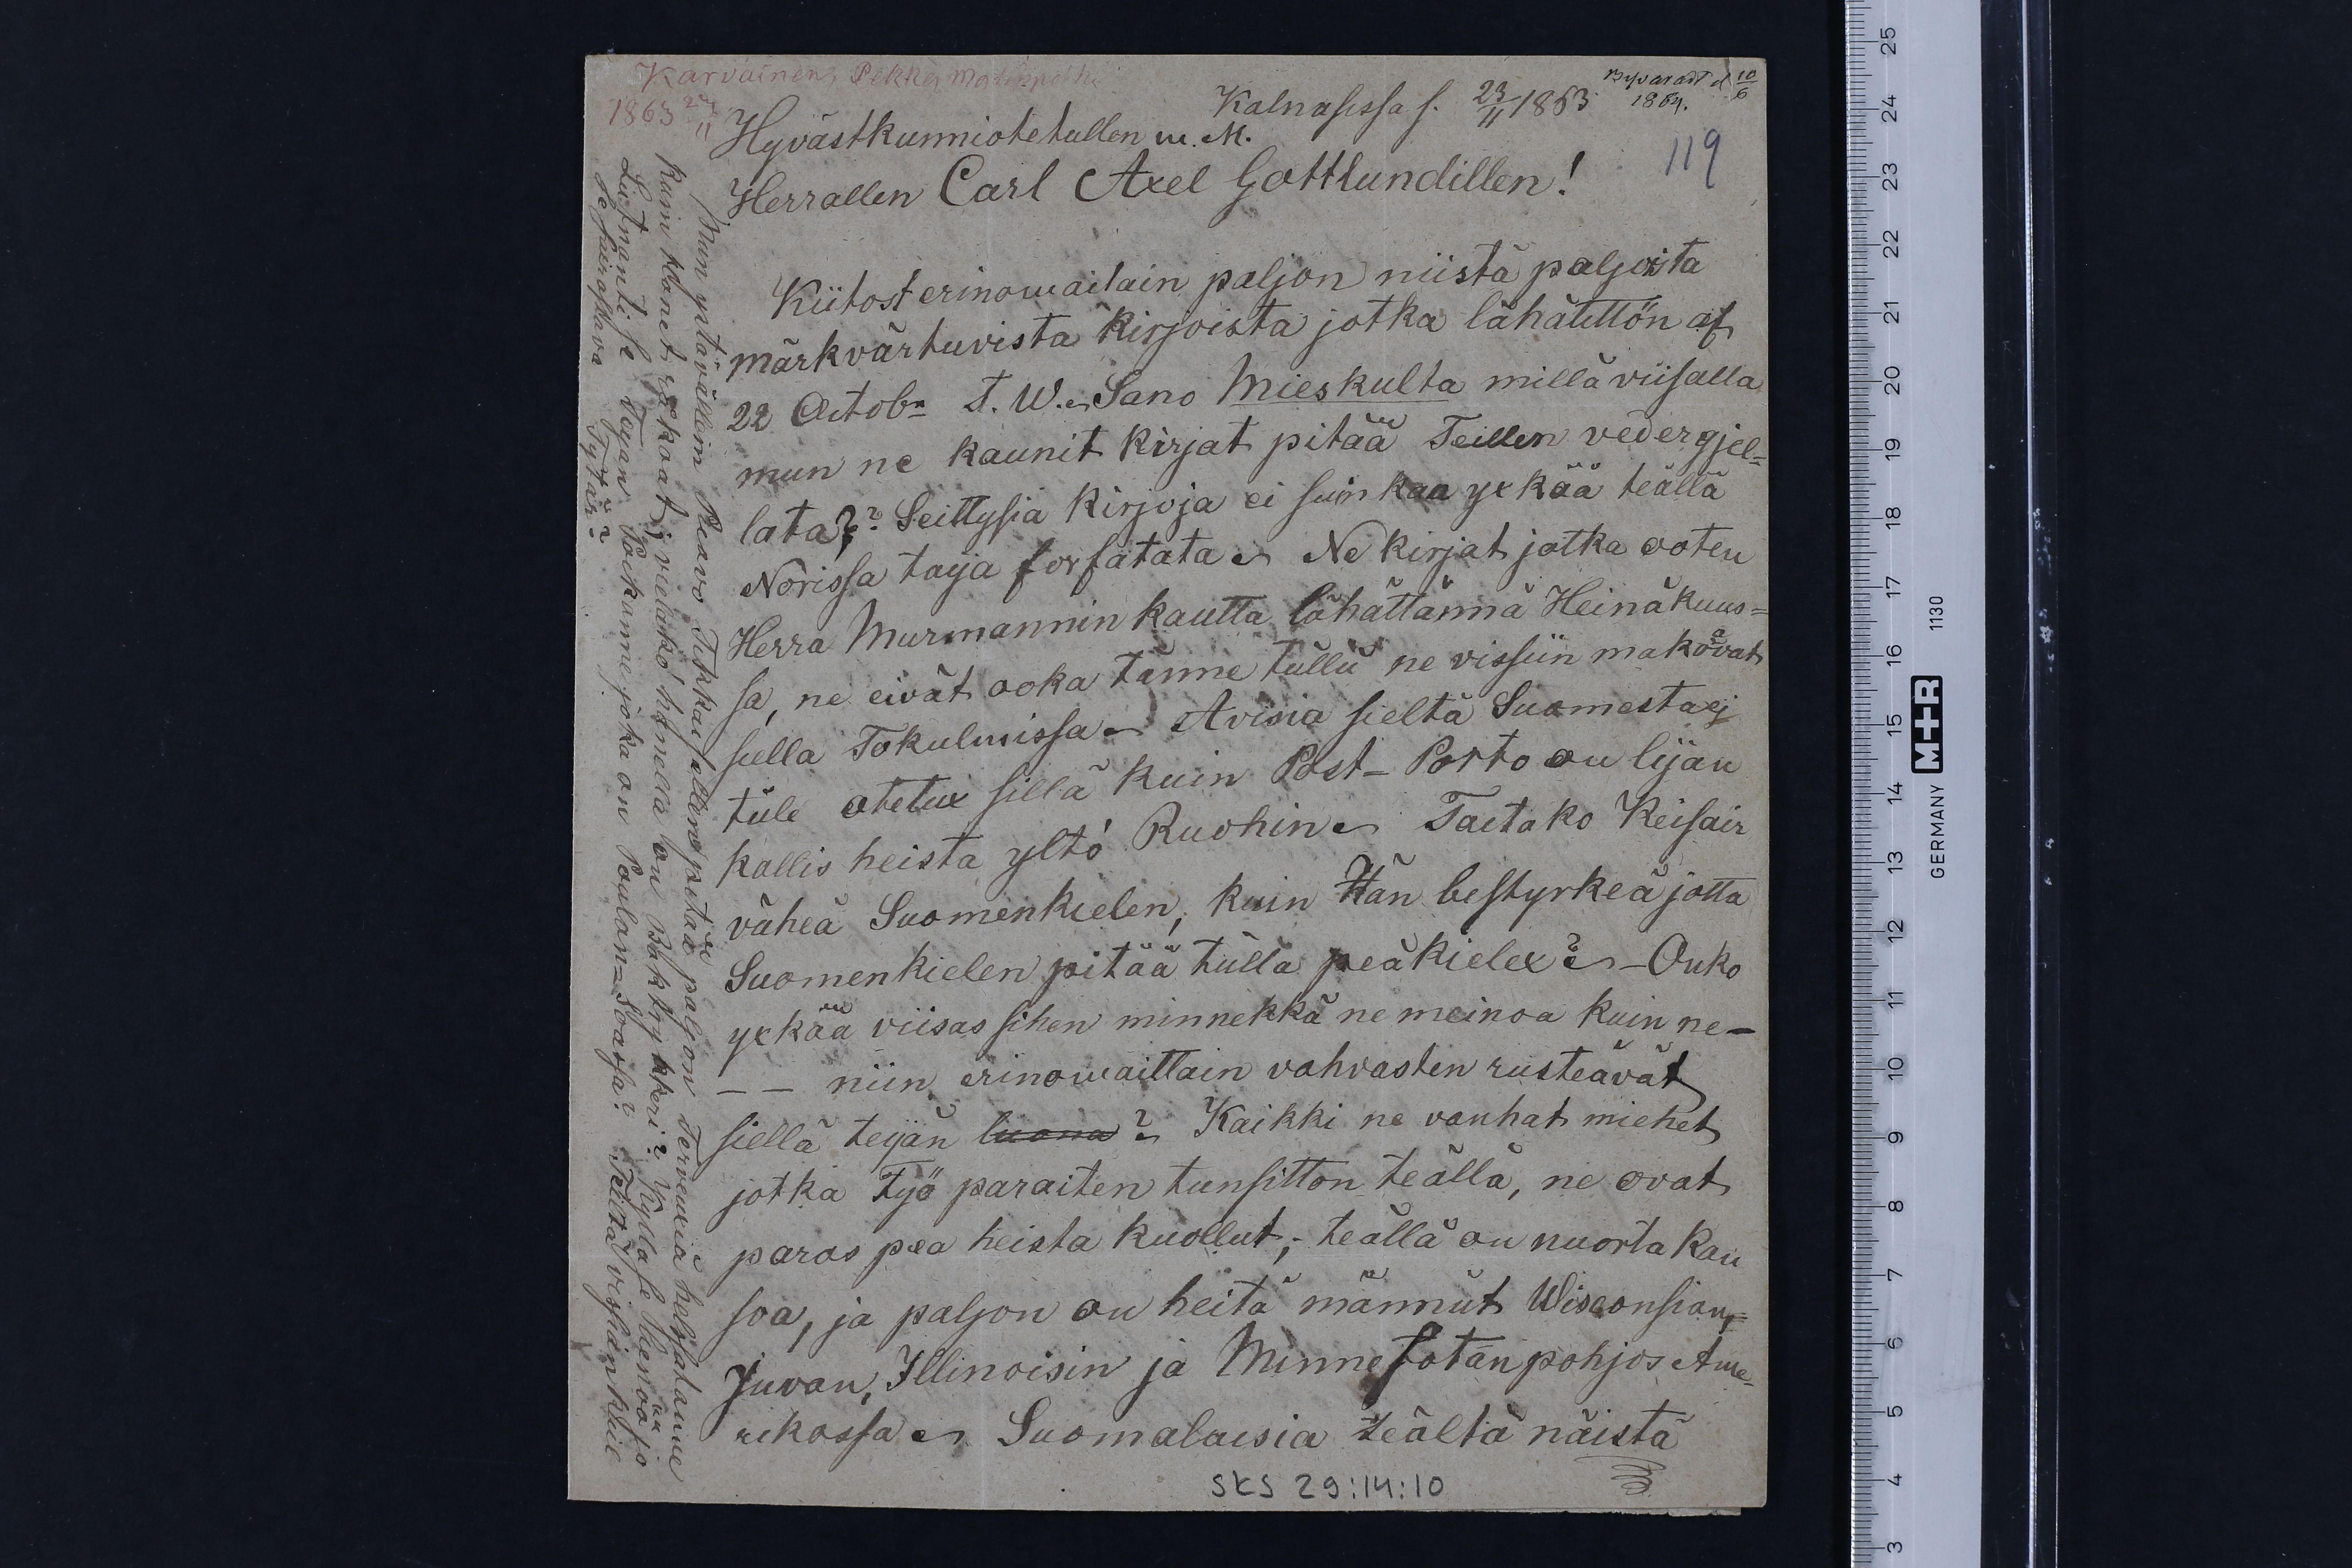 Karvainen, Pekka
1863 23/11
Kalnasessa s. 23/11 1863
Besvaradt d 10/6
1864.
119
Hyvästkunniotetullen m. M.
Herrallen Carl Axel Gottlundillen!
Kiitost erinomaitain paljon niistä paljosta
märkvärtuvista kirjoista jotka lähätittön af
22 Octobr T. W. Sano Mieskulta millä viisalla
mun ne kaunit kirjat pitää Teillen vedergjel=
lata? Seittysiä kirjoja ei suin kaa yxkää teällä
Norissa taija forfatata Ne kirjat jotka ooten
Herra Murmannin kautta lähättännä Heinäkuus=
sa, ne eivät ooka tänne tullu ne vissiin makoavat
siella Tokulmissa Avisia sieltä Suomesta ej
tule otetux sillä kuin Post-Porto on lijan
kallis heista yltö Ruohin Taitako Keisair
väheä Suomenkielen, kuin Hän bestyrkeä jotta
Suomenkielen pitää tulla peäkielex? - Onko
yxkää viisas sihen minnekkä ne meinoa kuin ne-
- - niin erinomaittain vahvasten rusteävät
siellä teijän luona? Kaikki ne vanhat miehet
jotka Työ paraiten tunsitton teällä, ne ovat
paras pea heista kuollut; teällä on nuorta kan
soa, ja paljon on heitä männut Wisconsian,
Juvan, Illinoisin ja Minnesotan pohjos Ame-
rikassa Suomalaisia teältä näistä
Mun ystävällein Peavo Tikkaisellen pitää paljon Terveuxiä helsatanne
Kuin hänet rookoat; vieläkö hänellä on Boktryckeri? Kyllä se lienöö jo
Lutnanti se Teijan Poekanne joka on Poulan=Soasa? Teiltä vissiin kuil
se pairastava Tytär?
SKS 29:14:10
GERMANY M+R 1130
25
24
23
22
21
20
19
18
17
16
15
14
13
12
11
10
9
8
7
6
5
4
3